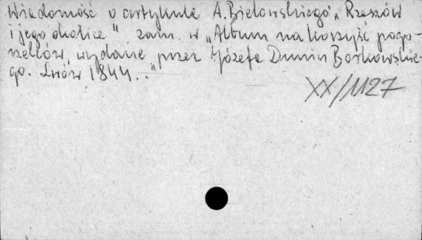 Wiadomość o artykule A. Bielowskiego „Rzeszów
i jego okolice" zam. w „Album na korzyść pogo-
rzelców, wydane przez Józefa Dunin Borkowskie-
go. Lwów 1844.."
XX/1127